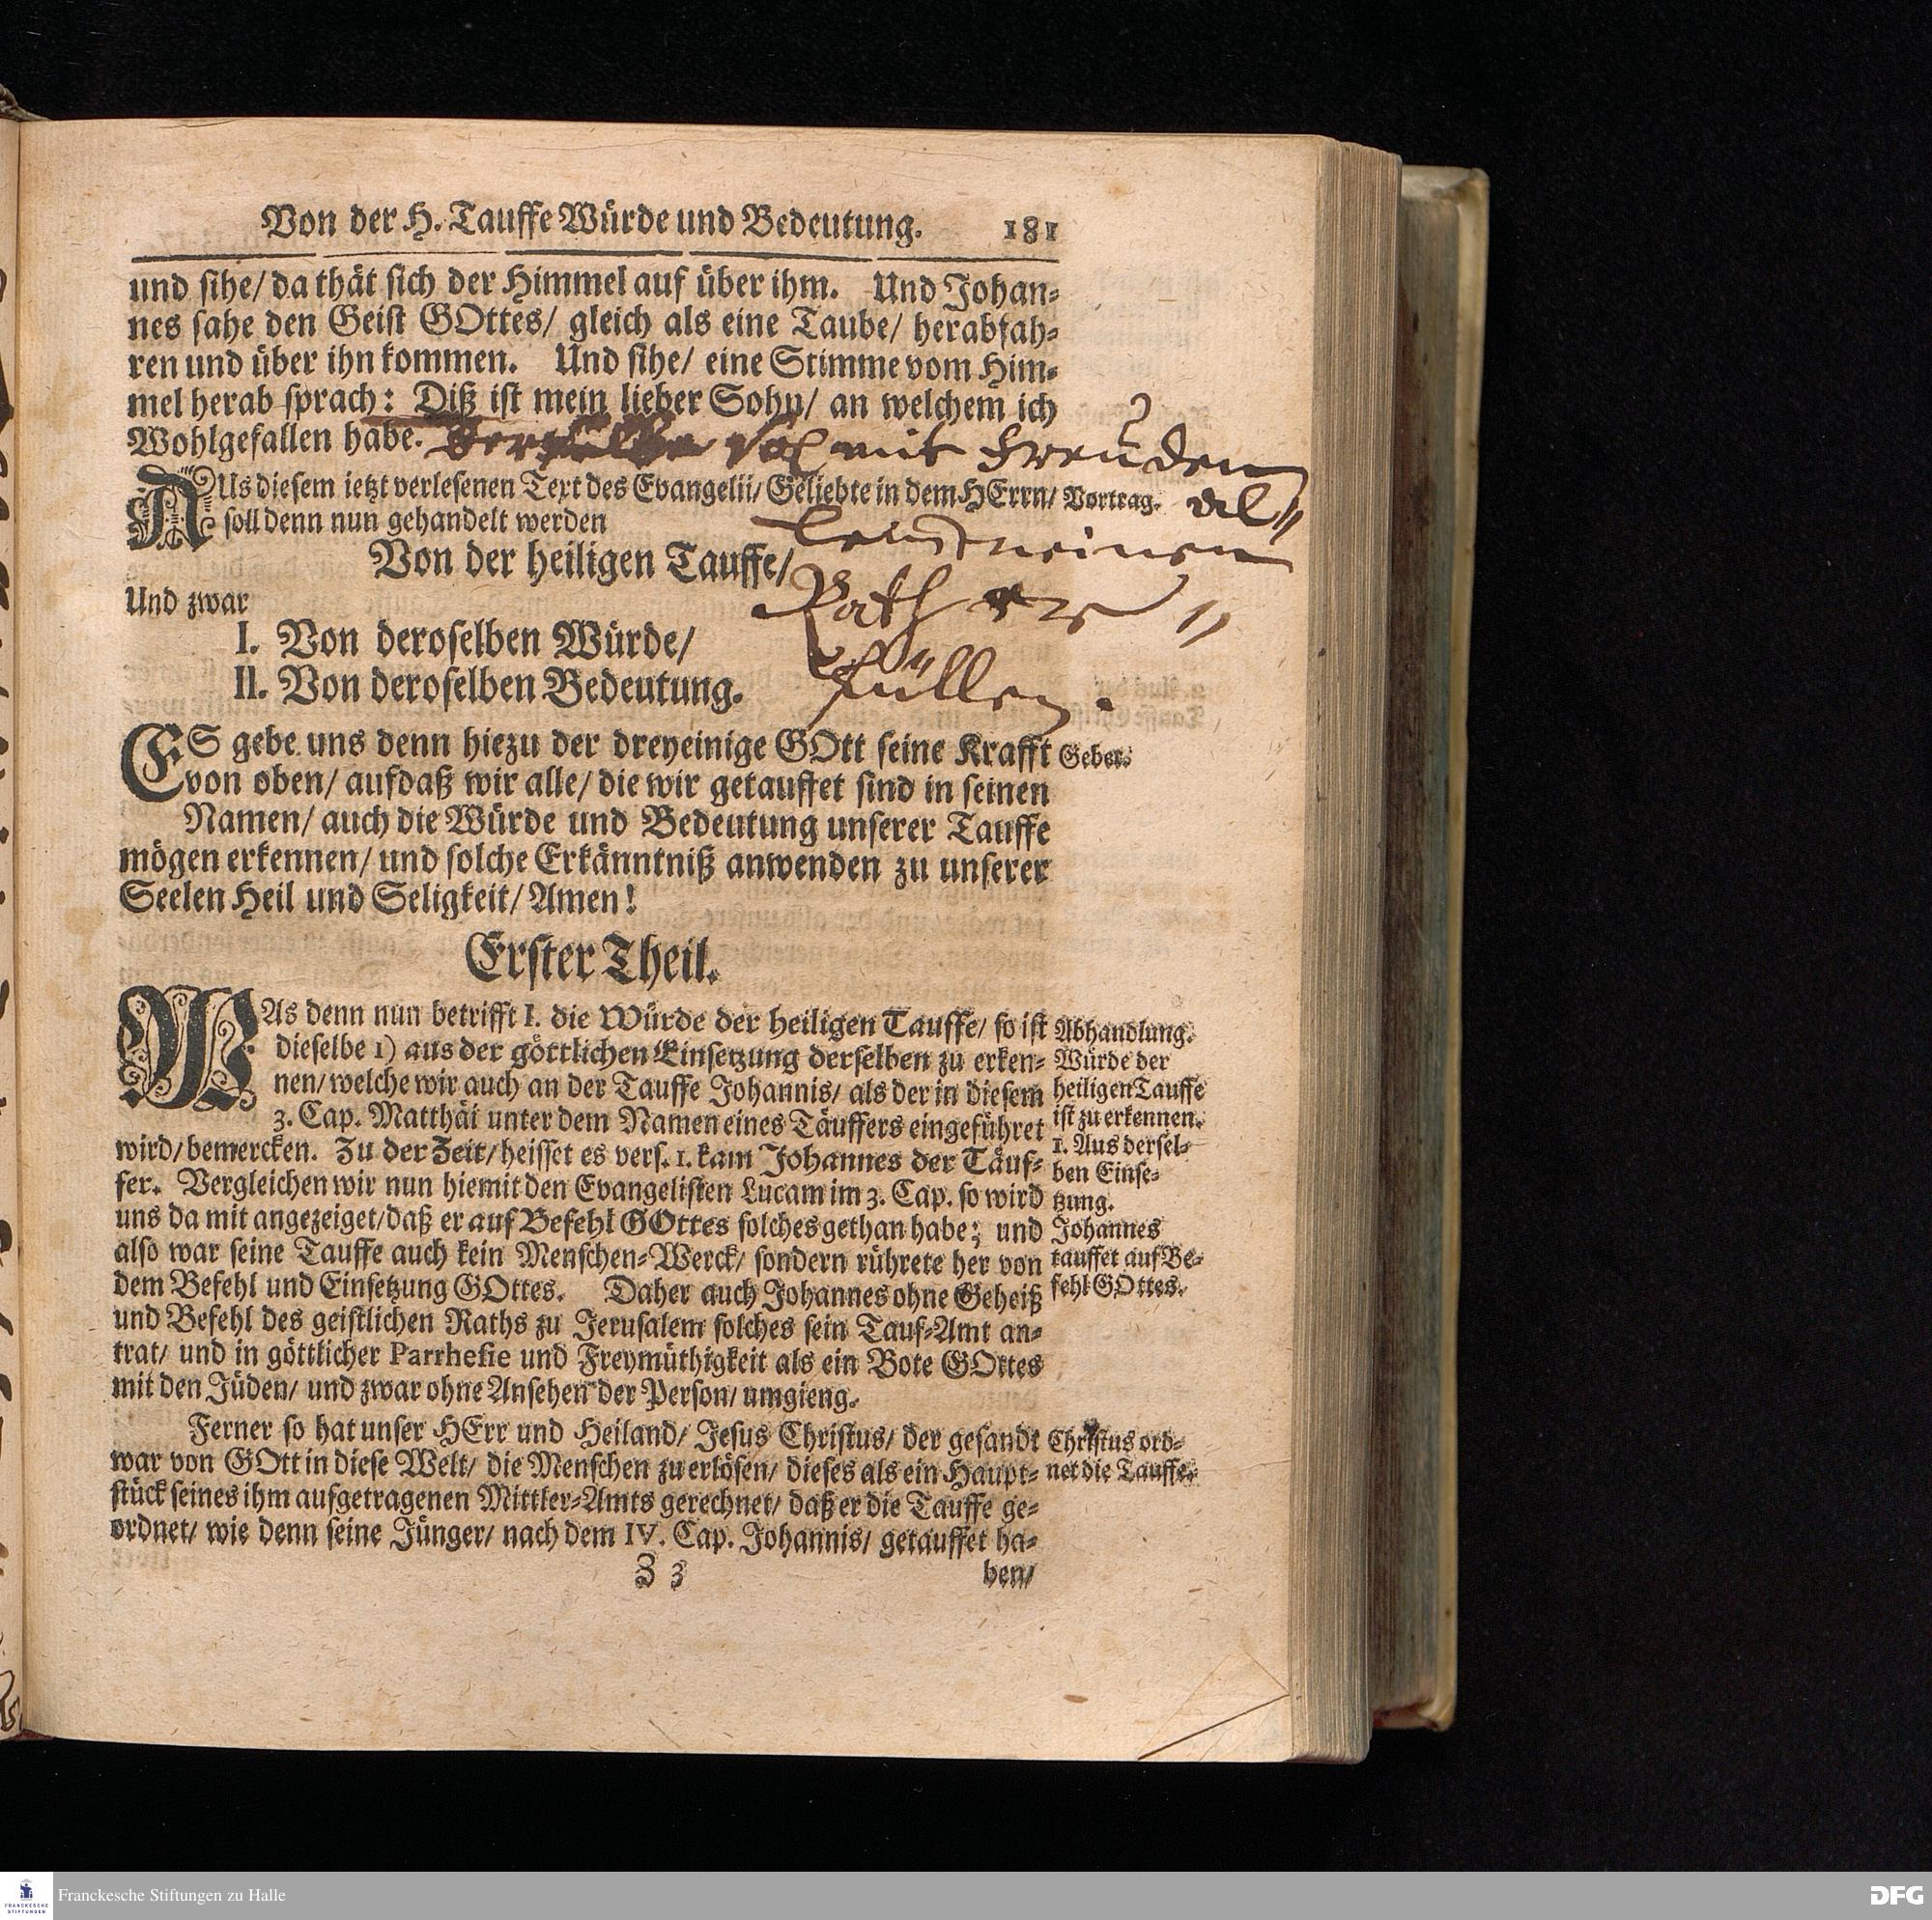 Von der H. Tauffe Würde und Bedeutung. 181
und sihe/ da thät sich der Himmel auf über ihm. Und Johan-
nes sahe den Geist GOttes/ gleich als eine Taube/ herabfah-
ren und über ihn kommen. Und sihe/ eine Stimme vom Him-
mel herab sprach: Diß ist mein lieber Sohn/ an welchem ich
Wohlgefallen habe. mit Freuden
AUs diesem ietzt verlesenen Text des Evangelii/ Geliebte in dem HErrn/ Vortrag.
soll denn nun gehandelt werden
Von der heiligen Tauffe/
Rath er
Und zwar
I. Von deroselben Würde/
füllen.
II. Von deroselben Bedeutung.
ES gebe uns denn hiezu der dreyeinige GOtt seine Krafft Gebet.
von oben/ aufdaß wir alle/ die wir getauffet sind in seinen
Namen/ auch die Würde und Bedeutung unserer Tauffe
mögen erkennen/ und solche Erkänntniß anwenden zu unserer
Seelen Heil und Seligkeit/ Amen!
Erster Theil.
WAs denn nun betrifft I. die Würde der heiligen Tauffe/ so ist
dieselbe 1) aus der göttlichen Einsetzung derselben zu erken-
nen/ welche wir auch an der Tauffe Johannis/ als der in diesem
3. Cap. Matthäi unter dem Namen eines Täuffers eingeführet
wird/ bemercken. Zu der Zeit/ heisset es vers. 1. kam Johannes der Täuf-
fer. Vergleichen wir nun hiemit den Evangelisten Lucam im 3. Cap. so wird
uns da mit angezeiget/ daß er auf Befehl GOttes solches gethan habe; und
also war seine Tauffe auch kein Menschen-Werck/ sondern rührete her von
dem Befehl und Einsetzung GOttes. Daher auch Johannes ohne Geheiß
und Befehl des geistlichen Raths zu Jerusalem solches sein Tauf-Amt an-
trat/ und in göttlicher Parrhesie und Freymüthigkeit als ein Bote GOttes
mit den Jüden/ und zwar ohne Ansehen der Person/ umgieng.
Abhandlung.
Würde der
heiligen Tauffe
ist zu erkennen.
1. Aus dersel-
ben Einse-
tzung.
Johannes
tauffet auf Be-
fehl GOttes.
Ferner so hat unser HErr und Heiland/ Jesus Christus/ der gesandt
war von GOtt in diese Welt/ die Menschen zu erlösen/ dieses als ein Haupt-
stück seines ihm aufgetragenen Mittler-Amts gerechnet/ daß er die Tauffe ge-
ordnet/ wie denn seine Jünger/ nach dem IV. Cap. Johannis/ getauffet ha-
Christus ord-
net die Tauffe.
Z 3 ben/
Franckesche Stiftungen zu Halle
FRANCKESCHE
STIFTUNGEN
DFG